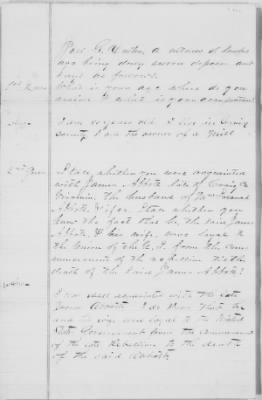 a witness of lawful
age being duly sworn deposes and
says as follows.
1st Ques
What is your age where do you
reside & what is your occupation?
Ans
I am years old. I live in Craig
County. I am the owner of a Mill
2nd Ques
State whether you were acquainted
with James Abbott late of Craig Co
Virginia. The husband of
Abbott. & if so, State whether you
know the fact that he, the said James
Abbott, & his wife, were loyal to
the Union of the U.S. from the com-
mencement of the rebellion till the
death of the said James Abbott?
I was well acquainted with the late
James Abbott. I do know that he
and his wife were loyal to the United
States Government from the commencement
of the late Rebellion to the death
of the said Abbott.